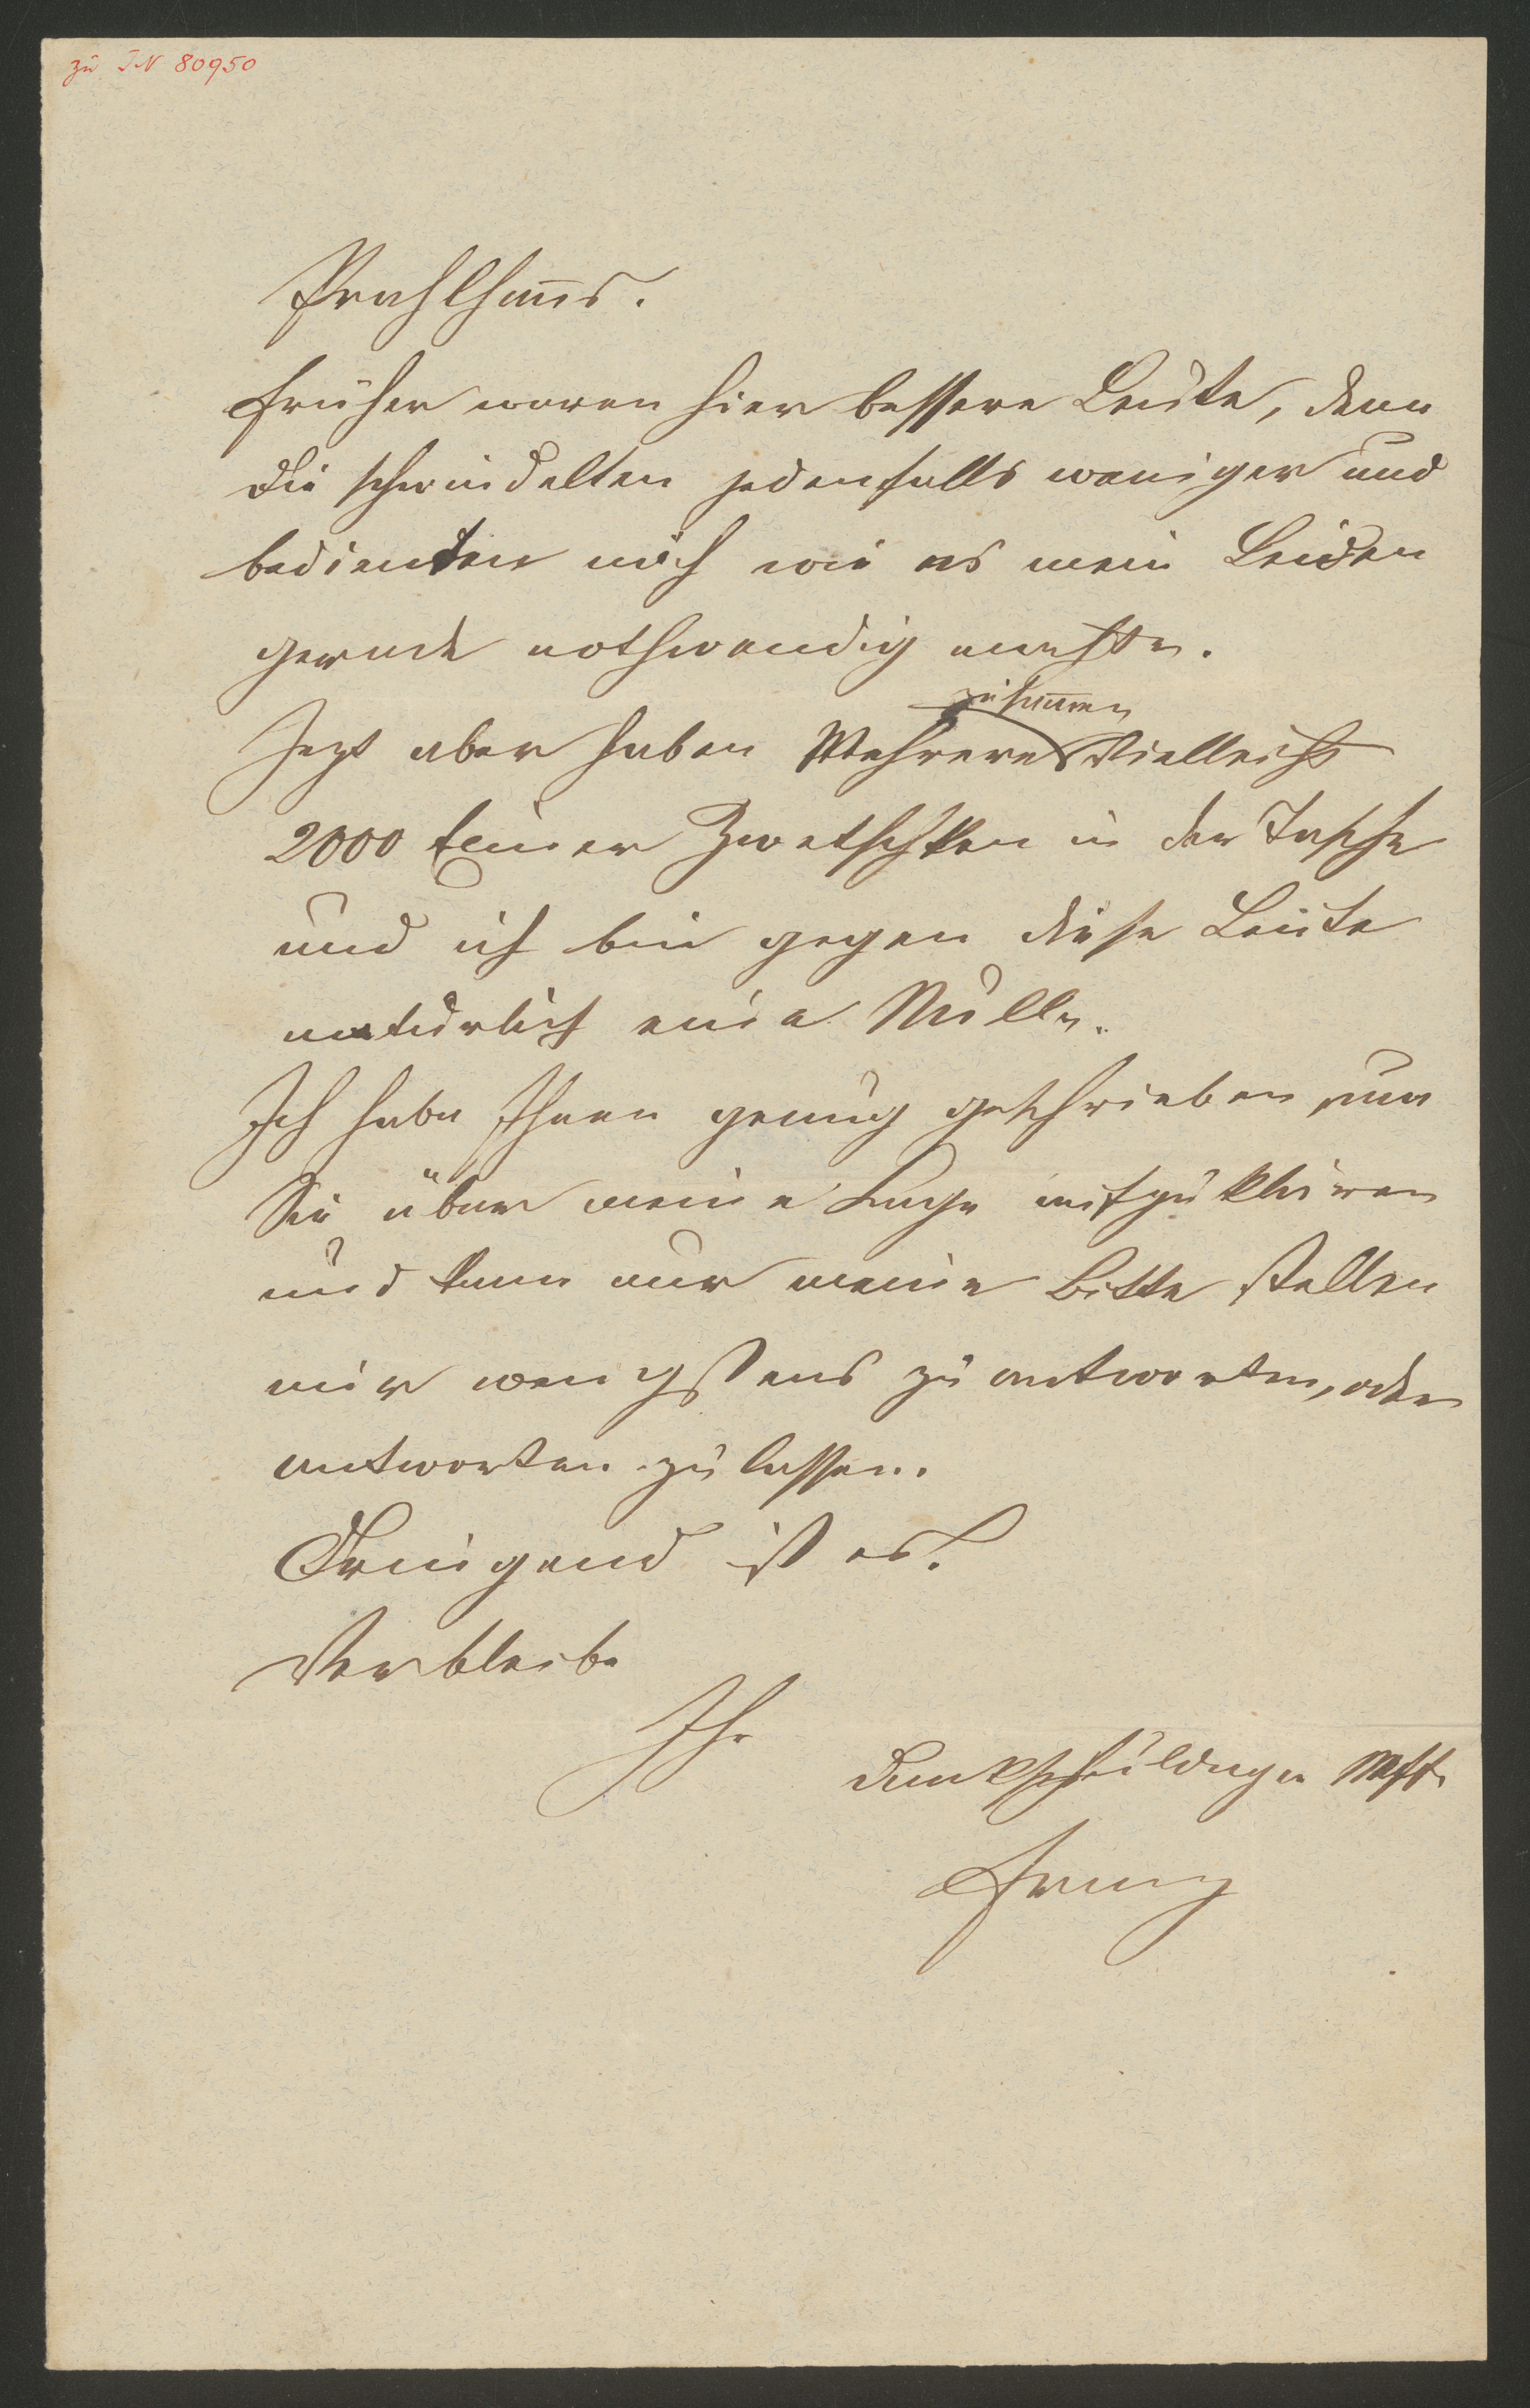 zu IN 80950
Prahlhans.
Früher waren hier bessere Leute, denn
die schwindelten jedenfalls weniger und
bedienten mich wie es mein Leiden
gerade nothwendig machte.
zusammen
Jezt aber haben Mehrere Vielleicht
2000 Eimer Zwetschken in der Tasche
und ich bin gegen diese Leute
natürlich eine Nulle.
Ich habe Ihnen genug geschrieben, um
Sie über meine Lage aufzuklären
und kann nur meine Bitte stellen
mir wenigstens zu antworten, oder
antworten zu lassen.
Dringend ist es!
Verbleibe
Ihr
dankschuldiger Neffe
Franz